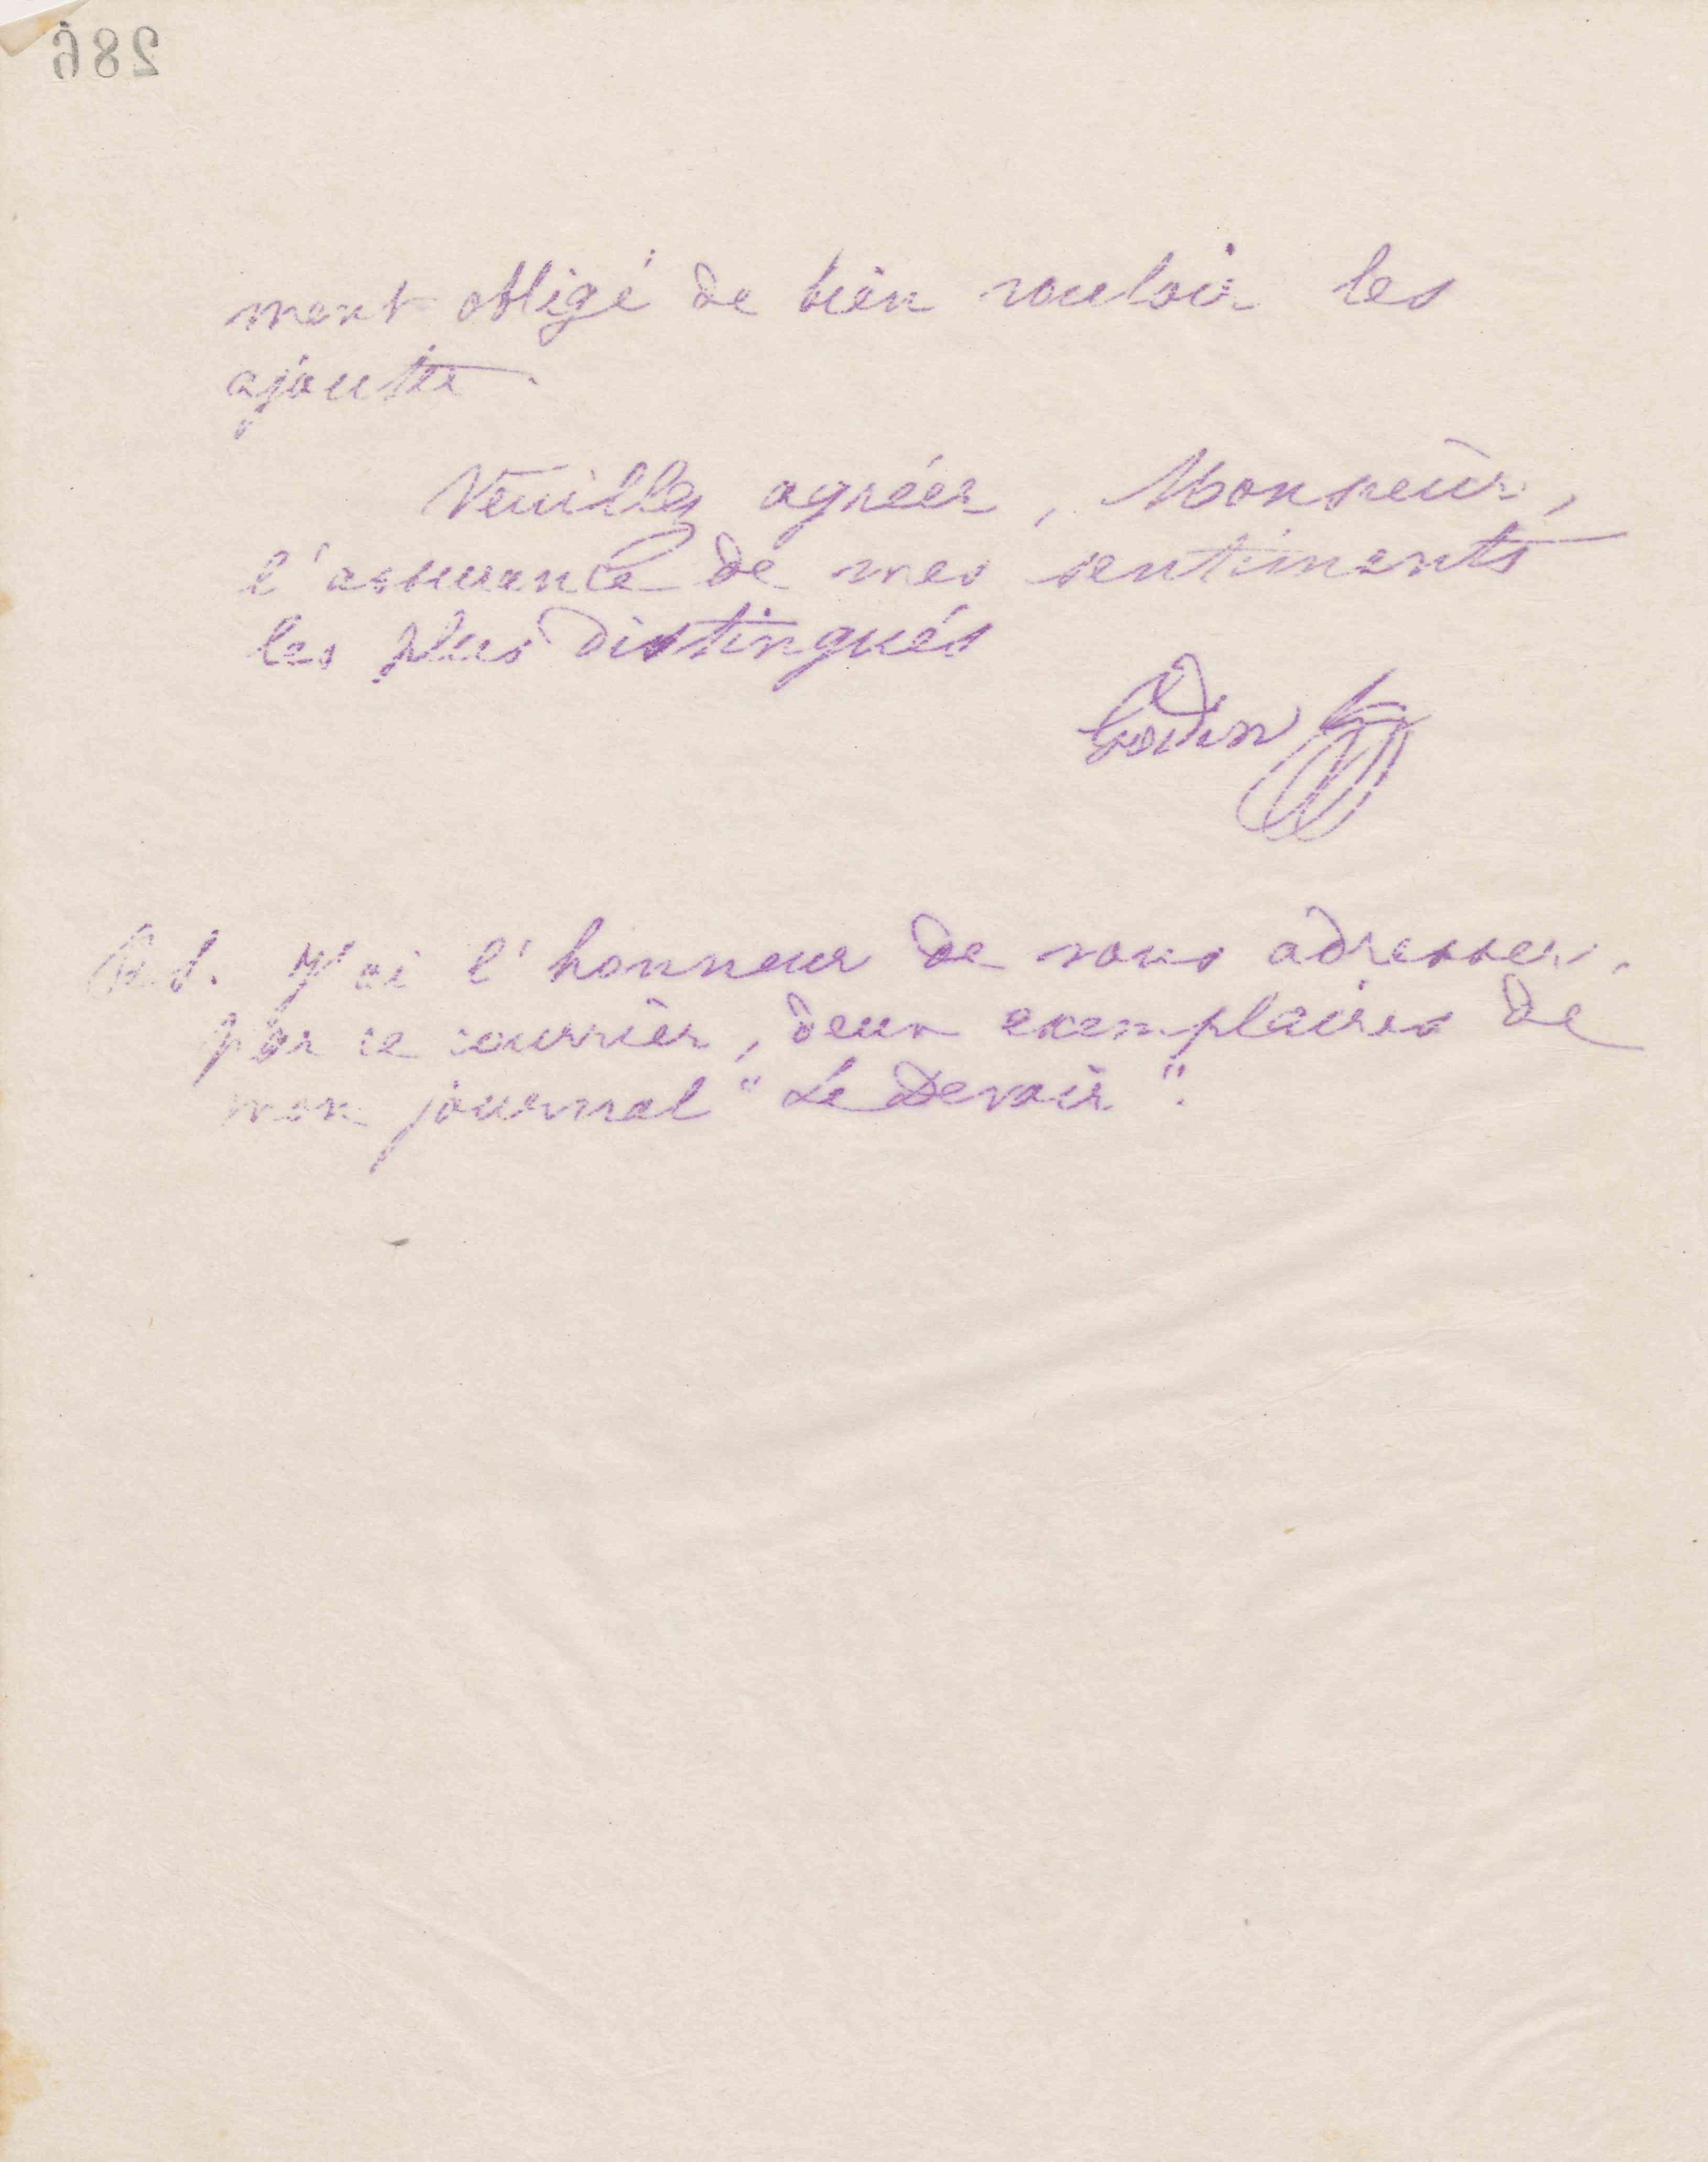 286
ment obligé de bien vouloir les
ajouter.
Veuillez agréer, Monsieur,
l'assurance de mes sentiments
les plus distingués
Godin
P.S. J'ai l'honneur de vous adresser,
par ce courrier, deux exemplaires de
mon journal "Le Devoir".